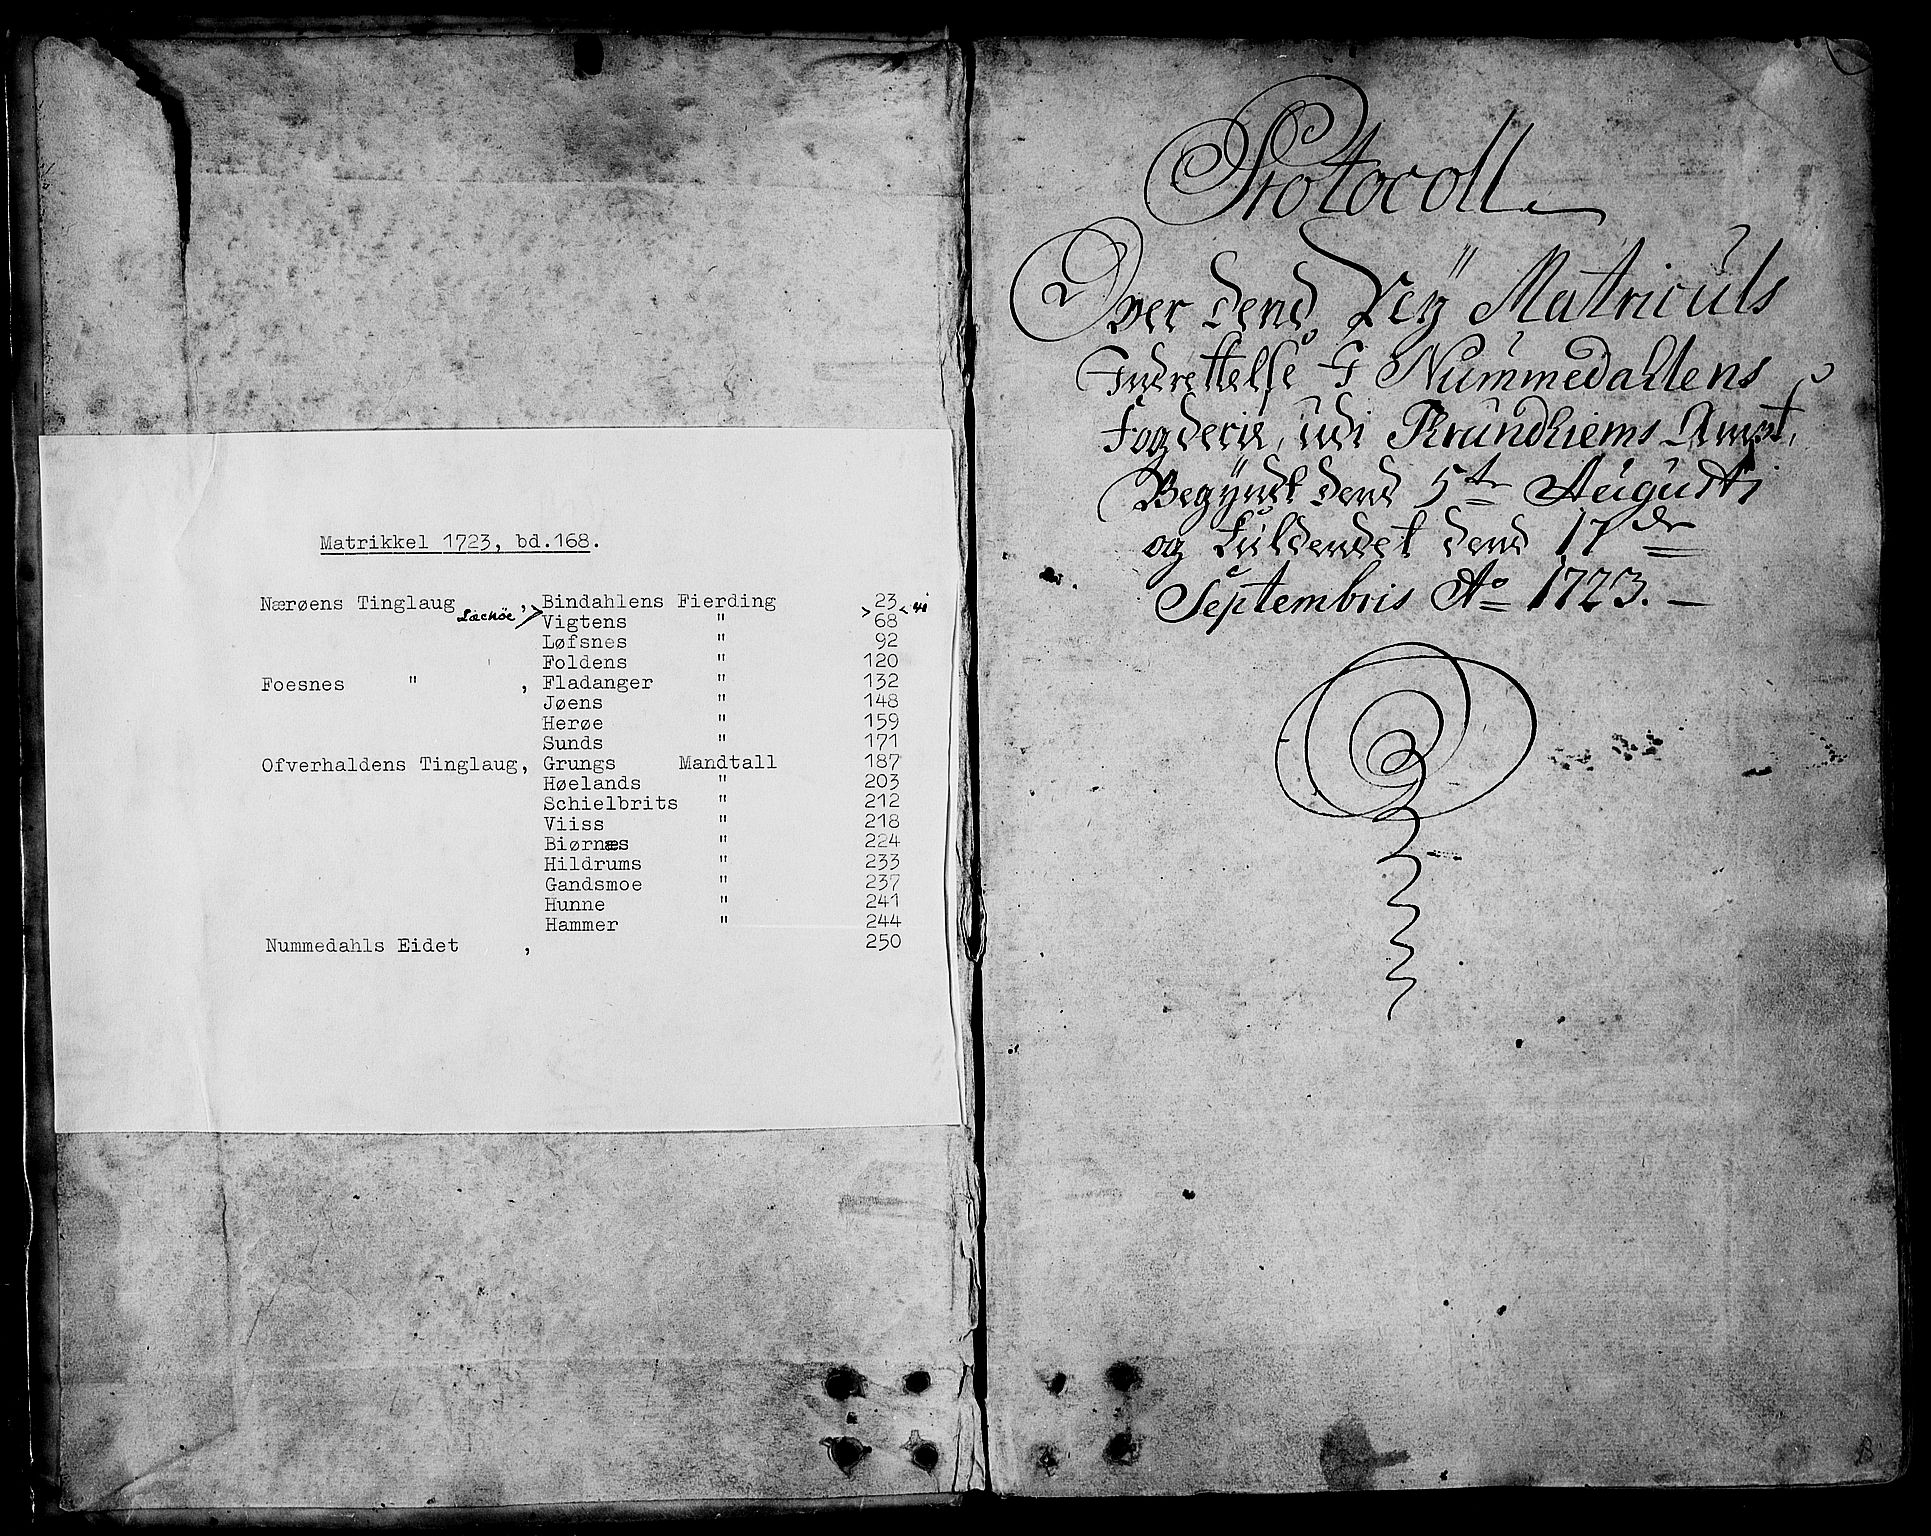 Matrikkel 1723, bd.168.
Nærøens Tinglaug, Bindahlens Fierding 23
Lecköe > 41
Vigtens " 68
Løfsnes " 92
Foldens " 120
Foesnes " , Fladanger " 132
Jøens " 148
Herøe " 159
Sunds " 171
Ofverhaldens Tinglaug, Grungs Mandtall 187
Høelands " 203
Schielbrits " 212
Viiss " 218
Biørnæs " 224
Hildrums " 233
Gandsmoe " 237
Hunne " 241
Hammer " 244
Nummedahls Eidet , 250
Protocoll
Over dend Nÿ Matriculs
Indrettelse I Nummedahlens
Fogderie, udi Trundhiems Ampt,
Begÿndt dend 5te Augusti
og Fuldendet dend 17de
Septembris Ao 1723.